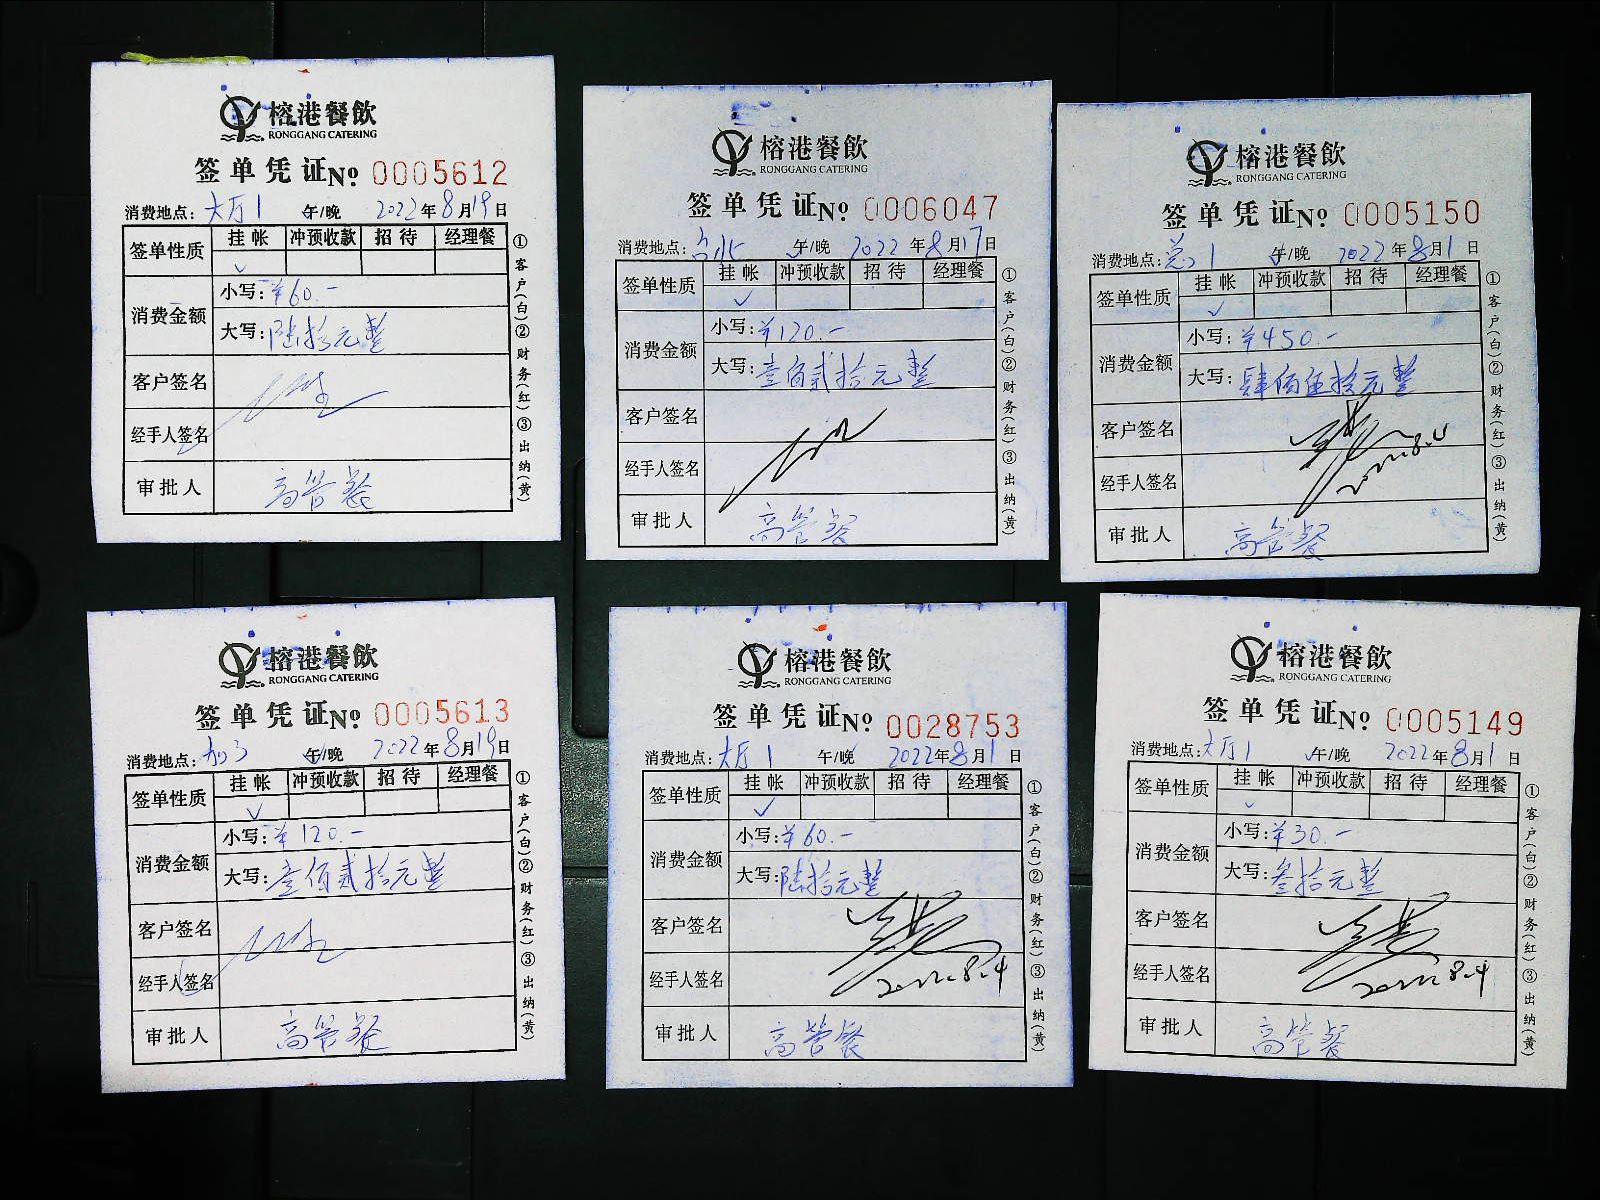 榕港餐飲
RONGGANG CATERING
签单凭证No 0005612
消费地点: 大厅1 午/晚 2022年8月19日
签单性质 挂帐 冲预收款 招待 经理餐
✓
消费金额 小写: ¥60.-
大写: 陆拾元整
客户签名
经手人签名
审批人 高管餐
①客户(白)②财务(红)③出纳(黄)
榕港餐飲
RONGGANG CATERING
签单凭证No 0006047
消费地点: 台北 午/晚 2022年8月17日
签单性质 挂帐 冲预收款 招待 经理餐
✓
消费金额 小写: ¥120.-
大写: 壹佰贰拾元整
客户签名
经手人签名
审批人 高管餐
①客户(白)②财务(红)③出纳(黄)
榕港餐飲
RONGGANG CATERING
签单凭证No 0005150
消费地点: 总1 午/晚 2022年8月1日
签单性质 挂帐 冲预收款 招待 经理餐
✓
消费金额 小写: ¥450.-
大写: 肆佰伍拾元整
客户签名
2022.8.4
经手人签名
审批人 高管餐
①客户(白)②财务(红)③出纳(黄)
榕港餐飲
RONGGANG CATERING
签单凭证No 0005613
消费地点: 午/晚 2022年8月19日
签单性质 挂帐 冲预收款 招待 经理餐
✓
消费金额 小写: ¥120.-
大写: 壹佰贰拾元整
客户签名
经手人签名
审批人 高管餐
①客户(白)②财务(红)③出纳(黄)
榕港餐飲
RONGGANG CATERING
签单凭证No 0028753
消费地点: 大厅1 午/晚 2022年8月1日
签单性质 挂帐 冲预收款 招待 经理餐
✓
消费金额 小写: ¥60.-
大写: 陆拾元整
客户签名
经手人签名 2022.8.4
审批人 高管餐
①客户(白)②财务(红)③出纳(黄)
榕港餐飲
RONGGANG CATERING
签单凭证No 0005149
消费地点: 大厅1 午/晚 2022年8月1日
签单性质 挂帐 冲预收款 招待 经理餐
✓
消费金额 小写: ¥30.-
大写: 叁拾元整
客户签名
经手人签名 2022.8.4
审批人 高管餐
①客户(白)②财务(红)③出纳(黄)